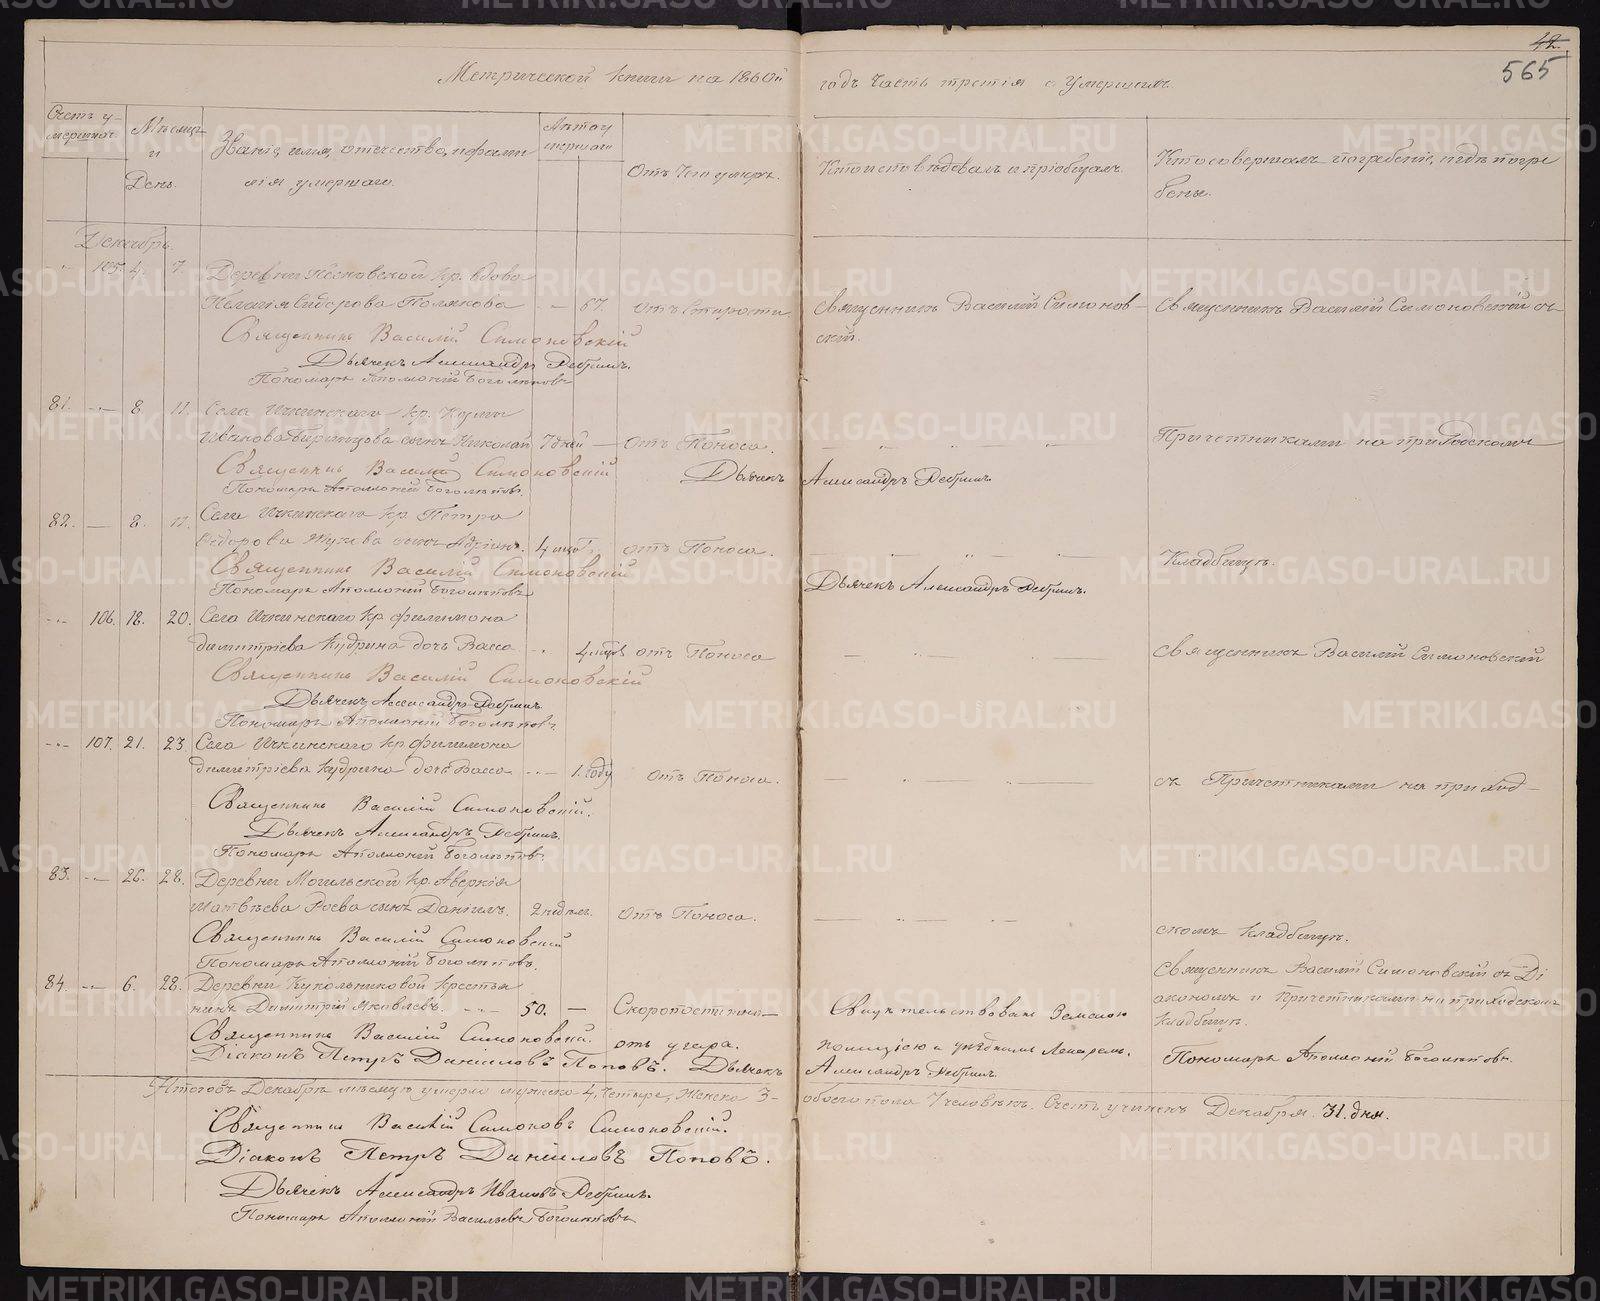 42
565
Метрической книги на 1860й годъ Часть третія о Умершихъ.
Счетъ умершихъ.
Мѣсяцъ и День.
Званіе, имя, отечество, и фамилія умершаго.
Лѣта умершаго
Отъ Чего умеръ.
Кто исповѣдовалъ и пріобщалъ.
Кто совершалъ погребеніе, и гдѣ погребены.
Декабрь.
105. 4. 7. Деревни кр. вдова
Пелагія Сидорова Полякова — 67. отъ Старости. Священникъ Василій Симоновскій. Священникъ Василій Симоновскій съ
Священникъ Василій Симоновскій
Дьячекъ Александръ Ребринъ.
Пономарь Аполлоній Боголѣповъ
81. — 8. 11. Села Ичкинскаго кр. Кузмы
Иванова сынъ Николай 7 дней — Отъ Поноса. Причетниками на приходскомъ
Священникъ Василій Симоновскій Дьячекъ Александръ Ребринъ.
Пономарь Аполлоній Боголѣповъ.
82. — 8. 11. Села Ичкинскаго кр. Петра
Ѳедорова сынъ Адріанъ. 4 мцо. отъ Поноса. Кладбищѣ.
Священникъ Василій Симоновскій Дьячекъ Александръ Ребринъ.
Пономарь Аполлоній Боголѣповъ
106. 18. 20. Села Ичкинскаго кр Филимона
Димитріева Кудрина дочь Васса 4 отъ Поноса Священникъ Василій Симоновскій
Священникъ Василій Симоновскій
Дьячекъ Александръ Ребринъ.
Пономарь Аполлоній Боголѣповъ.
107. 21. 23. Села Ичкинскаго кр Филимона
Димитріева Кудрина дочь Васса — 1. году отъ Поноса. съ Причетниками на приход-
Священникъ Василій Симоновскій.
Дьячекъ Александръ Ребринъ.
Пономарь Аполлоній Боголѣповъ.
83. — 26. 28. Деревни Могильской кр. Аверкія
Матвѣева Роева сынъ Даніилъ. 2 недѣл. Отъ Поноса. скомъ Кладбищѣ.
Священникъ Василій Симоновскій
Пономарь Аполлоній Боголѣповъ.
84. — 6. 28. Деревни Кукольниковой Крестьянинъ Димитрій Яковлевъ. — 50. — Скоропостижно отъ угара. Свидѣтельствованъ Земскою полиціею и уѣзднымъ Лекаремъ. Священникъ Василій Симоновскій съ Діакономъ и Причетниками на приходскомъ Кладбищѣ.
Священникъ Василій Симоновскій.
Діаконъ Петръ Даниловъ Поповъ. Дьячекъ Александръ Ребринъ. Пономарь Аполлоній Боголѣповъ.
Итого въ Декабрѣ мѣсяцѣ умерло мужеска 4, Четыре, Женска 3- обоего пола 7 человѣкъ. Счетъ учиненъ Декабря 31. дня.
Священникъ Василій Симоновъ Симоновскій.
Діаконъ Петръ Даніиловъ Поповъ.
Дьячекъ Александръ Ивановъ Ребринъ.
Пономарь Аполлоній Васильевъ Боголѣповъ
METRIKI.GASO-URAL.RU